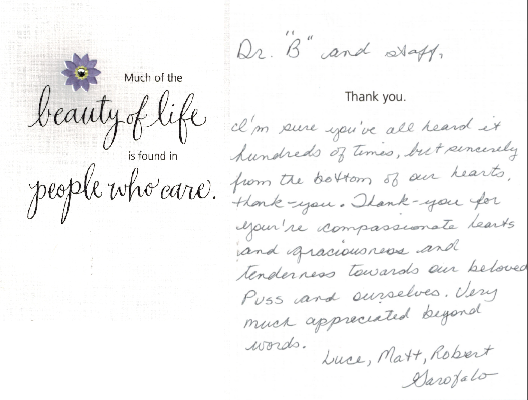 Much of the
beauty of life
is found in
people who care.
Dr. "B" and staff,
Thank you.
I'm sure you've all heard it
hundreds of times, but sincerely
from the bottom of our hearts,
thank-you. Thank-you for
your're compassionate hearts
and graciousness and
tenderness towards our beloved
Puss and ourselves. Very
much appreciated beyond
words.
Luce, Matt, Robert
Garofalo